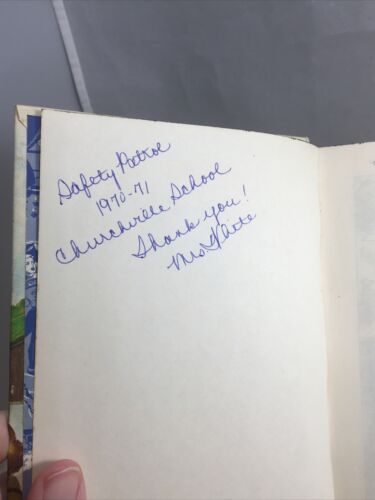 Safety Patrol
1970-71
Churchville School
Thank you!
Mrs White